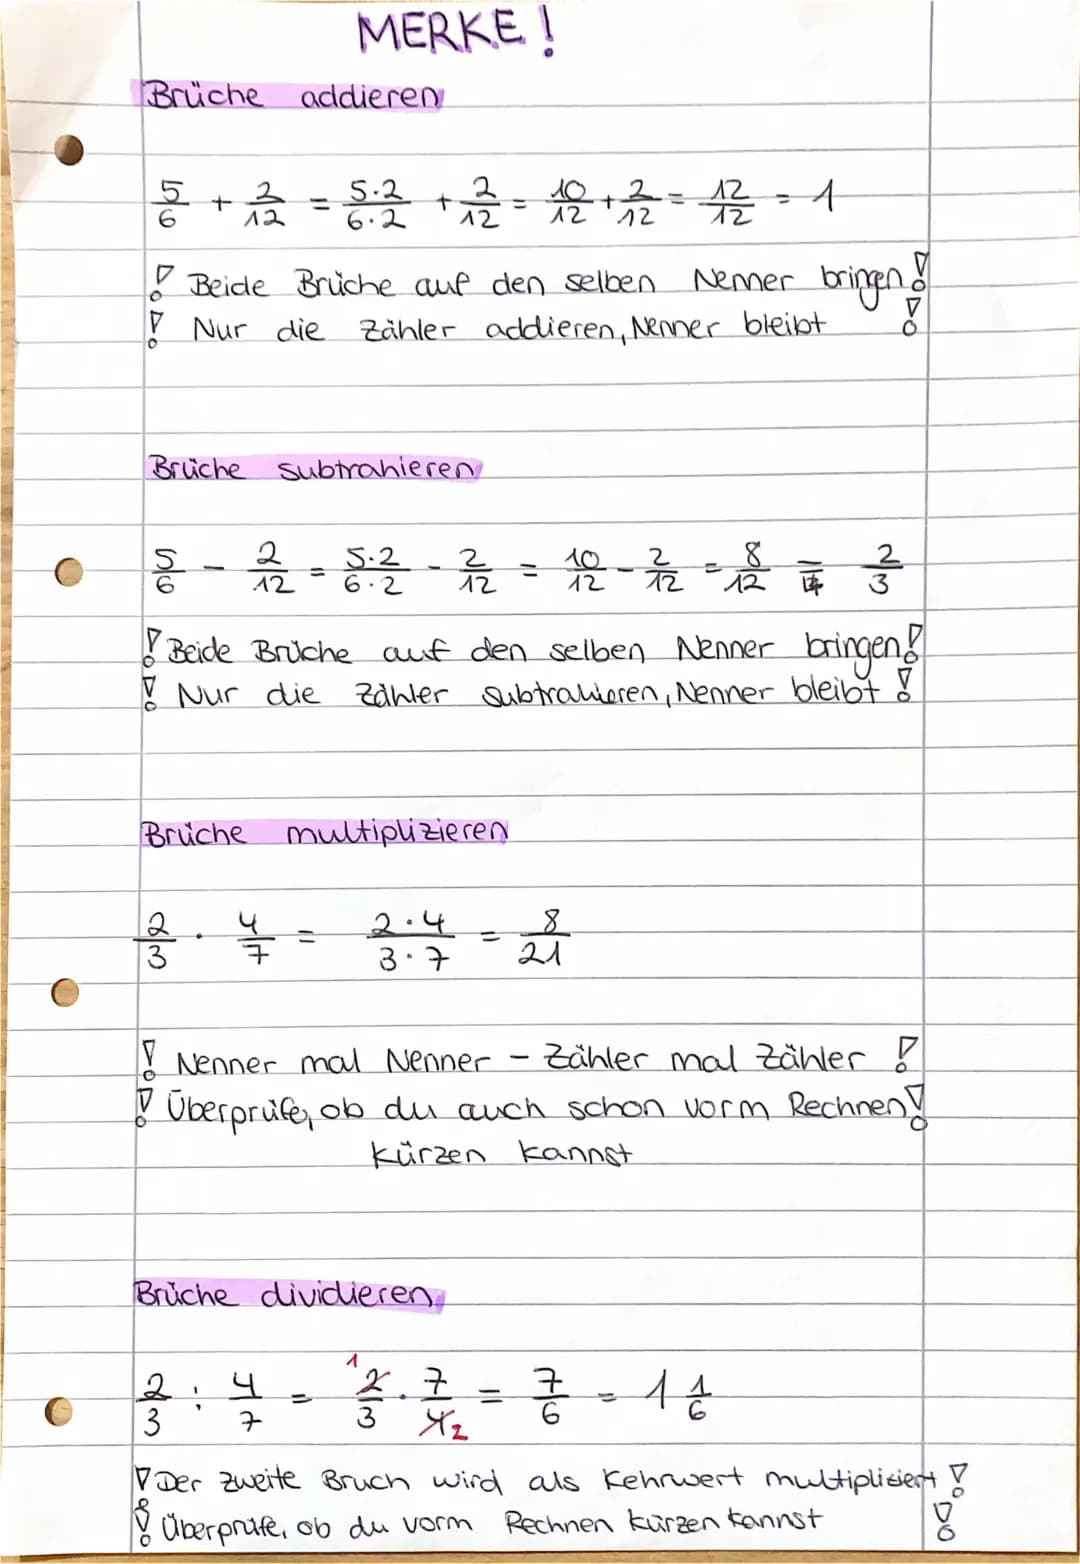 MERKE!
Brüche addieren
5/6 + 2/12 = 5·2/6·2 + 2/12 = 10/12 + 2/12 = 12/12 = 1
! Beide Brüche auf den selben Nenner bringen!
! Nur die Zähler addieren, Nenner bleibt !
Brüche subtrahieren
5/6 - 2/12 = 5·2/6·2 - 2/12 = 10/12 - 2/12 = 8/12 = 2/3
! Beide Brüche auf den selben Nenner bringen!
! Nur die Zähler subtrahieren, Nenner bleibt !
Brüche multiplizieren
2/3 · 4/7 = 2·4/3·7 = 8/21
! Nenner mal Nenner - Zähler mal Zähler !
! Überprüfe, ob du auch schon vorm Rechnen!
kürzen kannst
Brüche dividieren
1
2/3 : 4/7 = 2/3 · 7/4 2 = 7/6 = 1 1/6
! Der zweite Bruch wird als Kehrwert multiplisiert !
! Überprüfe, ob du vorm Rechnen kürzen kannst !